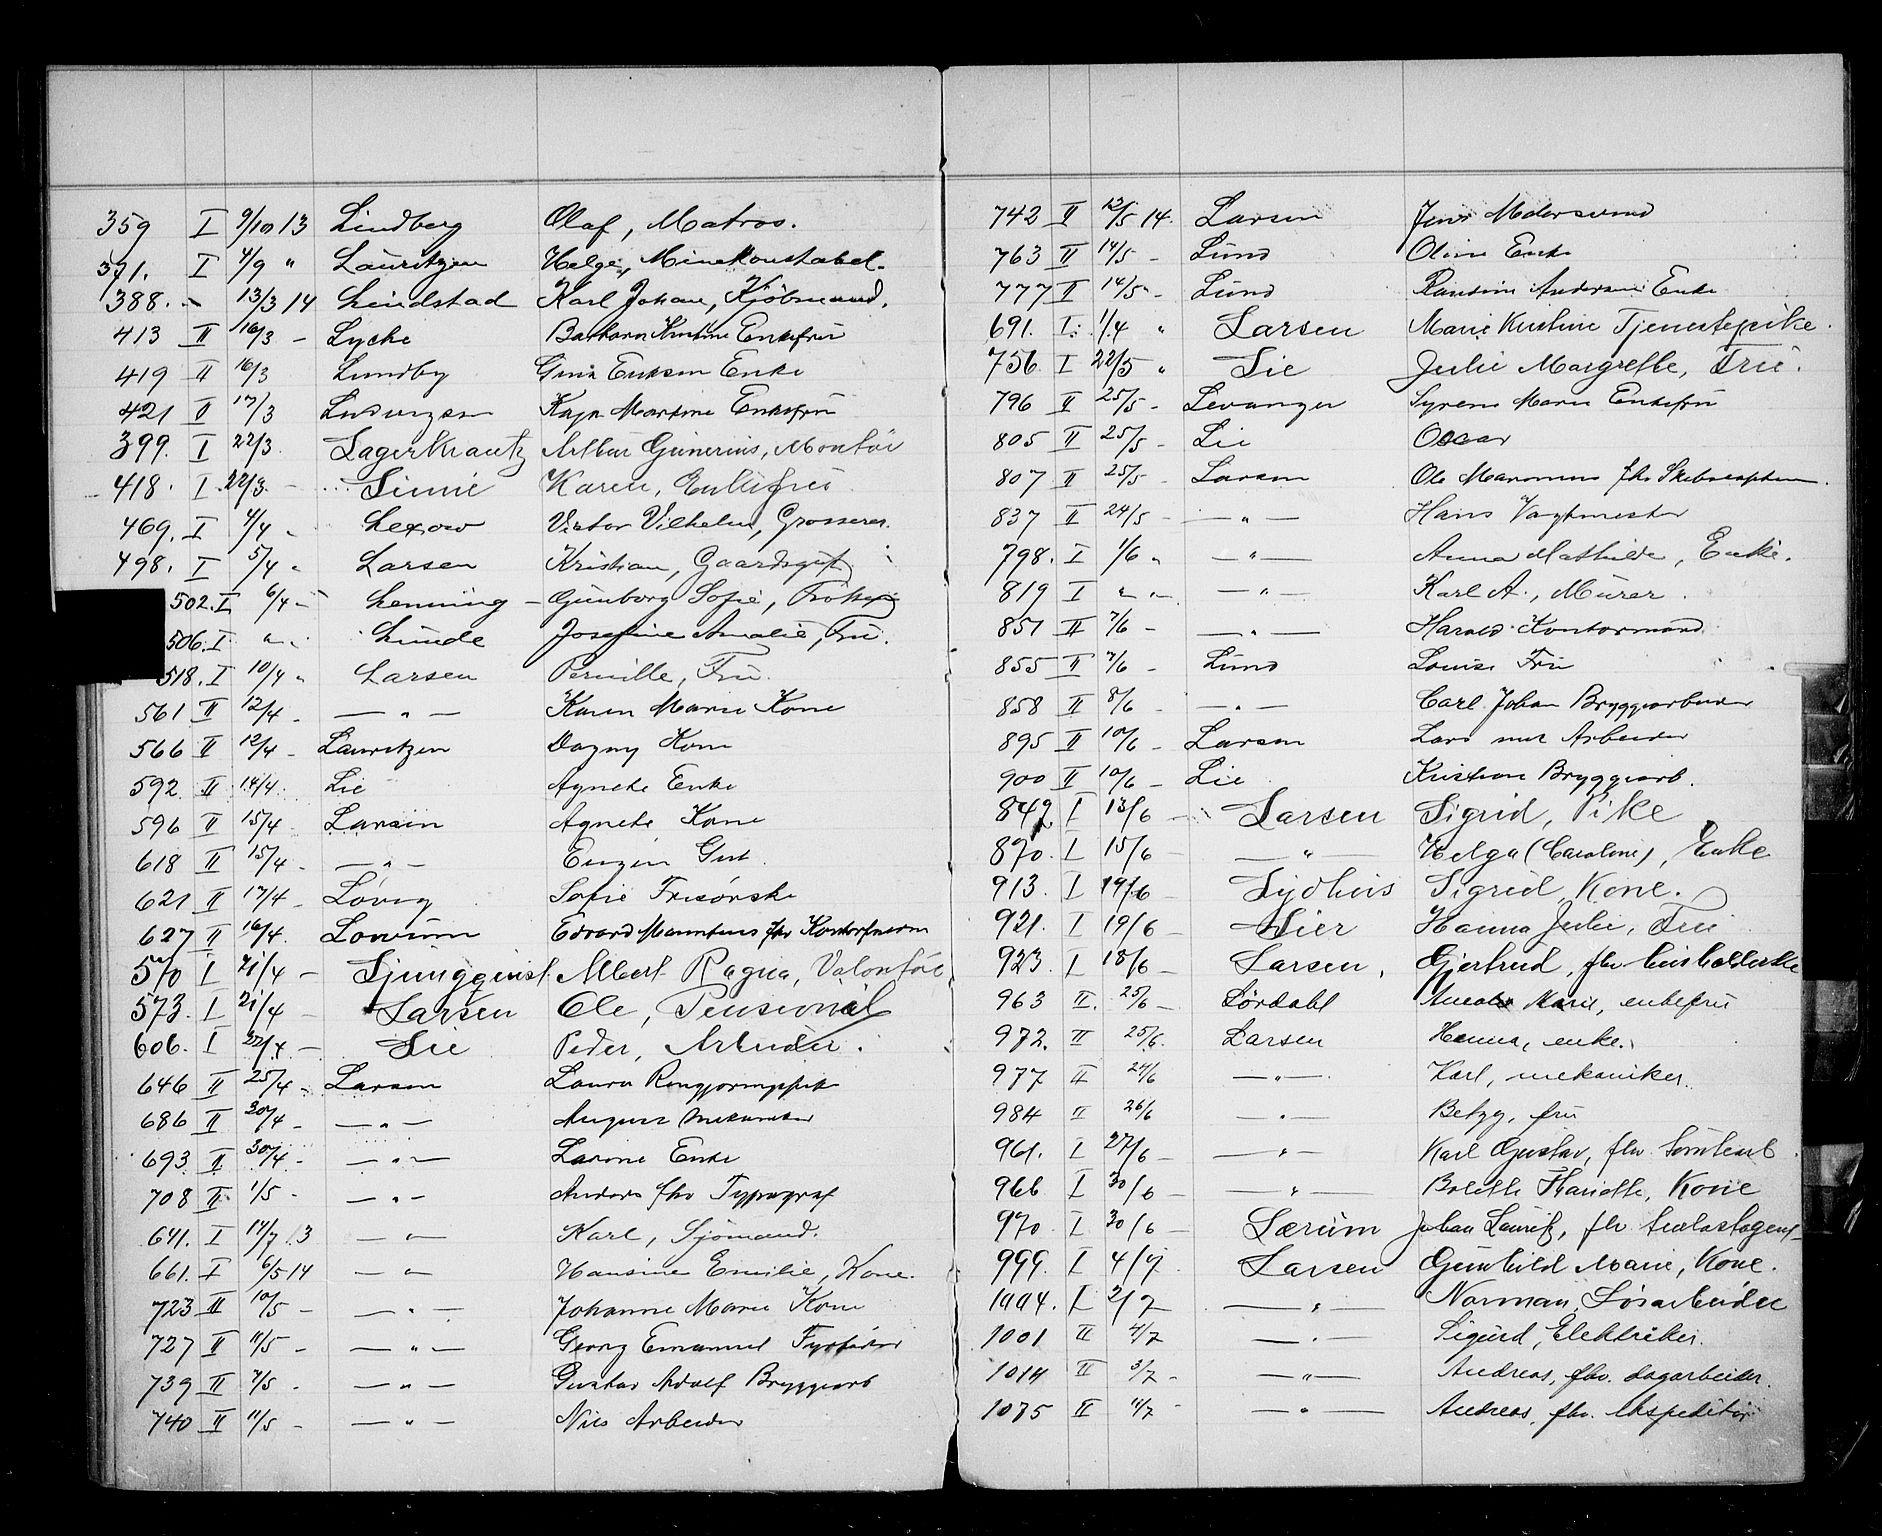 359 I 9/10 13 Lindberg Olaf, Matros.
371. I 4/9 " Lauritzen Helge, Minekonstabel.
388. - 13/3 14 Lindstad Karl Johan, Kjöbmand.
413 II 16/3 - Lyche Barbara Kristine Enkefru
419 II 16/3 Lundby Gina Eriksen Enke
421 II 17/3 Ludvigsen Kaja Martine Enkefru
399. I 22/3. Lagerkrantz Arthur Gunerius, Montör
418. I 22/3. - Linnie Karen, Enkefru
469. I 4/4 - Lexow Victor Vilhelm, Grosserer.
498. I 5/4 " Larsen Kristian, Gaardsgut
502. I 6/4 - Lenning - Gunborg Sofie, Fröken
506. I " " Lunde Josefine Amalie, Fru.
518. I 10/4 " Larsen Pernille, Fru.
561 II 12/4 - — " — Karen Marie Kone
566 II 12/4 - Lauritzen Dagny Kone
592 II 14/4. Lie Agnete Enke
596 II 15/4 - Larsen Agnete Kone
618 II 15/4 - — " — Eugen Gut.
621 II 17/4 - Lövig Sofie Frisörske
627 II 16/4. Lowum Edvard Mauritius fhv Kontorfuldm
570 I 21/4 - Ljungquist Albert Ragna, Volontör
573. I 21/4 - Larsen Ole, Pensionist
606. I 22/4 - Lie Peder, Arbeider.
646 II 25/4 - Larsen Laura Rengjøringspike
686 II 30/4 - — " — August Mekaniker
693 II 30/4 - — " — Larine Enke
708 II 1/5 - — " — Anders fhv Typograf
641. I 14/7 13 — " — Karl, Sjömand.
661. I 6/5 14 — " — Hansine Emilie, Kone.
723 II 10/5 - — " — Johanne Marie Kone
727 II 11/5 - — " — Georg Emanuel Fyrbøter
739 II 7/5 - — " — Gustav Adolf Bryggearb
740 II 11/5 - — " — Nils Arbeider
742 II 12/5 14. Larsen Jens Melersvend
763 II 14/5 - Lund Oline Enke
777 II 14/5 - Lund Randine Andersine Enke
691. I. 1/4 " Larsen Marie Kristine Tjenestepike.
756. I 22/5 " Lie Julie Margrethe, Frue.
796 II 25/5 - Levanger Syrene Marie Enkefru
805 II 25/5 - Lie Oscar
807 II 25/5 - Larsen Ole fhv Skibskaptein.
837 II 24/5 - — " — Hans Vagtmester
798. I 1/6 " — " — Anna Mathilde, Enke.
819 I " " — " — Karl A., Murer.
851 II 7/6 - — " — Harald Kontormand
855 II 7/6 - Lund Louise Fru
858 II 8/6 - — " — Carl Johan Bryggearbeider
895 II 10/6 - Larsen Lars Arbeider
900 II 10/6 - Lie Kristian Bryggearb.
842 I 13/6 - Larsen Sigrid, Pike
870. I 15/6 - — " — Helga (Caroline), Enke
913. I 19/6 - Lydhus Sigrid, Kone.
921. I 19/6 - Lier Hanna Julie, Frue
923. I 18/6 - Larsen, Gjertrud, fhv husholderske
963 II. 25/6 - Lördahl Marie, enkefru
972. II 25/6. Larsen Hanna, enke.
977 II 24/6 — " — Karl, mekaniker.
984 II 26/6 — " — Betzy, fru
961. I 27/6 - — " — Karl Gustav, fhv. tomtearb.
966 I 30/6 - — " — Bolette Hariette, Kone
970. I 30/6 - Lærum Johan Lauritz, fhv.
999. I 4/7 Larsen Gunhild Marie, Kone.
1004. I 2/7 — " — Norman, Løsarbeider
1001 II 4/7 — " — Sigurd, Elektriker.
1014 II 3/7 - — " — Andreas, fhv. dagarbeider.
1075 II 11/7 - — " — Andreas, fhv. Ekspeditør